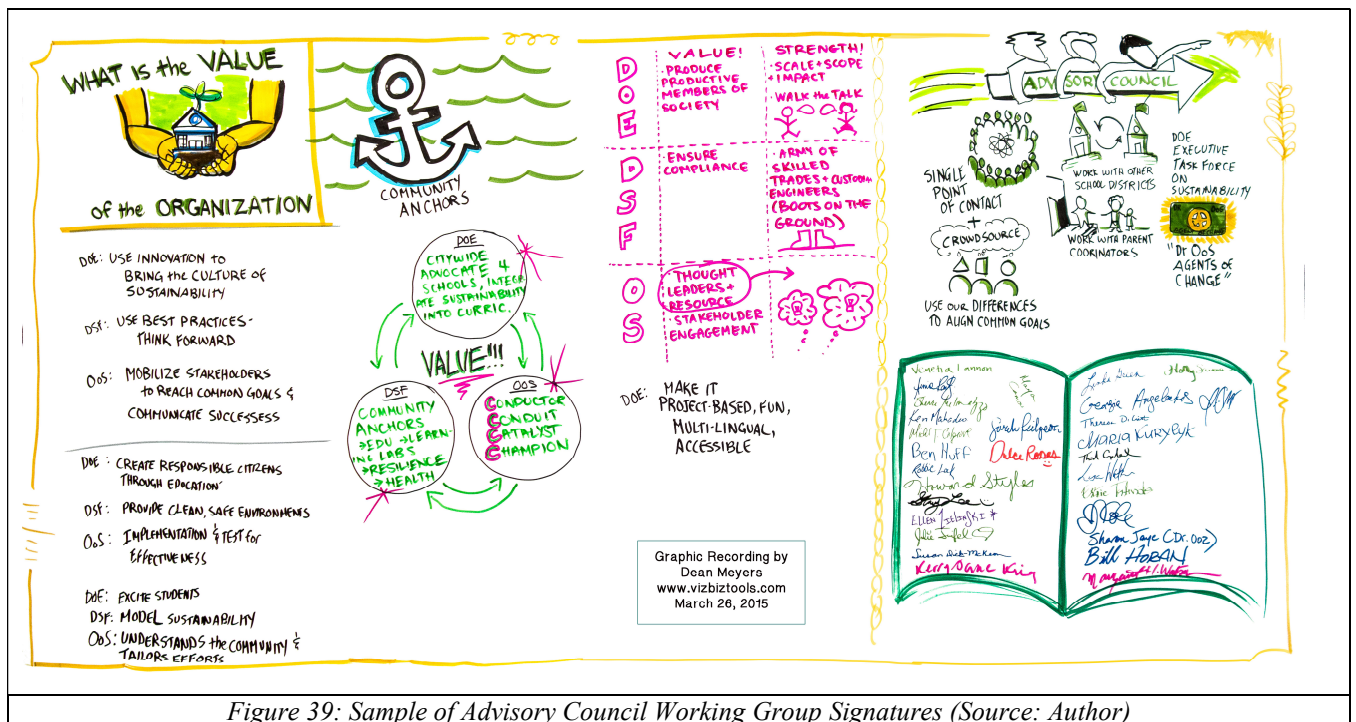 WHAT IS the VALUE
of the ORGANIZATION
DOE: USE INNOVATION to
BRING the CULTURE OF
SUSTAINABILITY
DSF: USE BEST PRACTICES-
THINK FORWARD
OoS: MOBILIZE STAKEHOLDERS
to REACH COMMON GOALS &
COMMUNICATE SUCCESSESS
DOE: CREATE RESPONSIBLE CITIZENS
THROUGH EDUCATION
DSF: PROVIDE CLEAN, SAFE ENVIRONMENTS
OoS: IMPLEMENTATION & TEST for
EFFECTIVENESS
DOE: EXCITE STUDENTS
DSF: MODEL SUSTAINABILITY
OoS: UNDERSTANDS the COMMUNITY &
TAILORS EFFORTS
COMMUNITY
ANCHORS
DOE
CITYWIDE
ADVOCATE 4
SCHOOLS, INTEGR
ATE SUSTAINABILITY
INTO CURRIC.
VALUE!!!
DSF
COMMUNITY
ANCHORS
→EDU →LEARN-
ING LABS
→RESILIENCE
→HEALTH
OOS
CONDUCTOR
CONDUIT
CATALYST
CHAMPION
DOE
VALUE!
·PRODUCE
PRODUCTIVE
MEMBERS OF
SOCIETY
STRENGTH!
·SCALE+SCOPE
+IMPACT
·WALK the TALK
DSF
·ENSURE
COMPLIANCE
·ARMY OF
SKILLED
TRADES+CUSTODIAN
ENGINEERS
(BOOTS ON THE
GROUND)
OS
·THOUGHT
LEADERS+
RESOURCE
·STAKEHOLDER
ENGAGEMENT
DOE: MAKE IT
PROJECT-BASED, FUN,
MULTI-LINGUAL,
ACCESSIBLE
Graphic Recording by
Dean Meyers
www.vizbiztools.com
March 26, 2015
ADVISORY COUNCIL
SINGLE
POINT
OF CONTACT
+
CROWDSOURCE
USE OUR DIFFERENCES
TO ALIGN COMMON GOALS
WORK WITH OTHER
SCHOOL DISTRICTS
WORK WITH PARENT
COORINATORS
DOE
EXECUTIVE
TASK FORCE
ON
SUSTAINABILITY
"Dr OoS
AGENTS of
CHANGE"
Venetia Lannon
Ben Huff
Sarah Pidgeon
Dulce Rosas
Howard Styles
Kerry Dane King
George Angelakos
MARIA KURYLYK
Sharon Jaye (Dr. OOZ)
Bill HOBAN
Figure 39: Sample of Advisory Council Working Group Signatures (Source: Author)